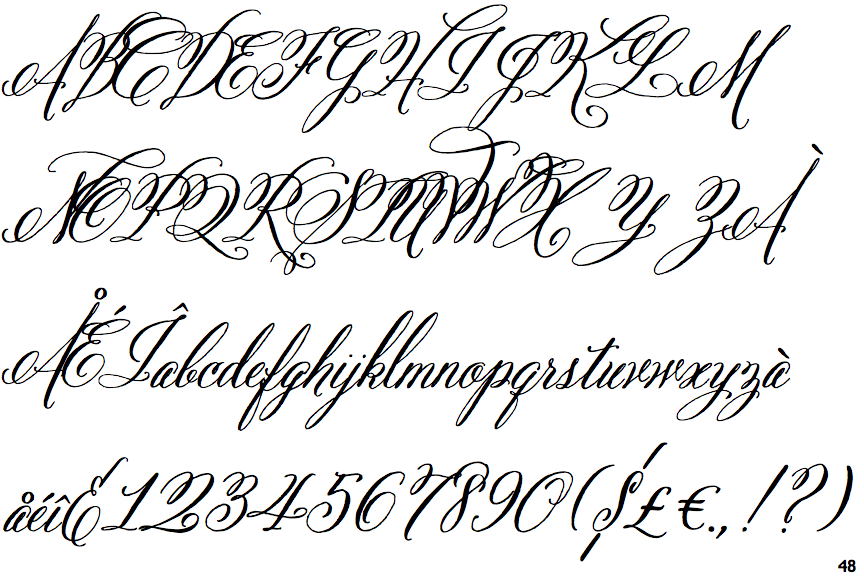 ABCDEFGHIJKLM
NOPQRSTUVWXYZÀ
ÅÉÎabcdefghijklmnopqrstuvwxyzà
åéîõ1234567890($£€.,!?)
48